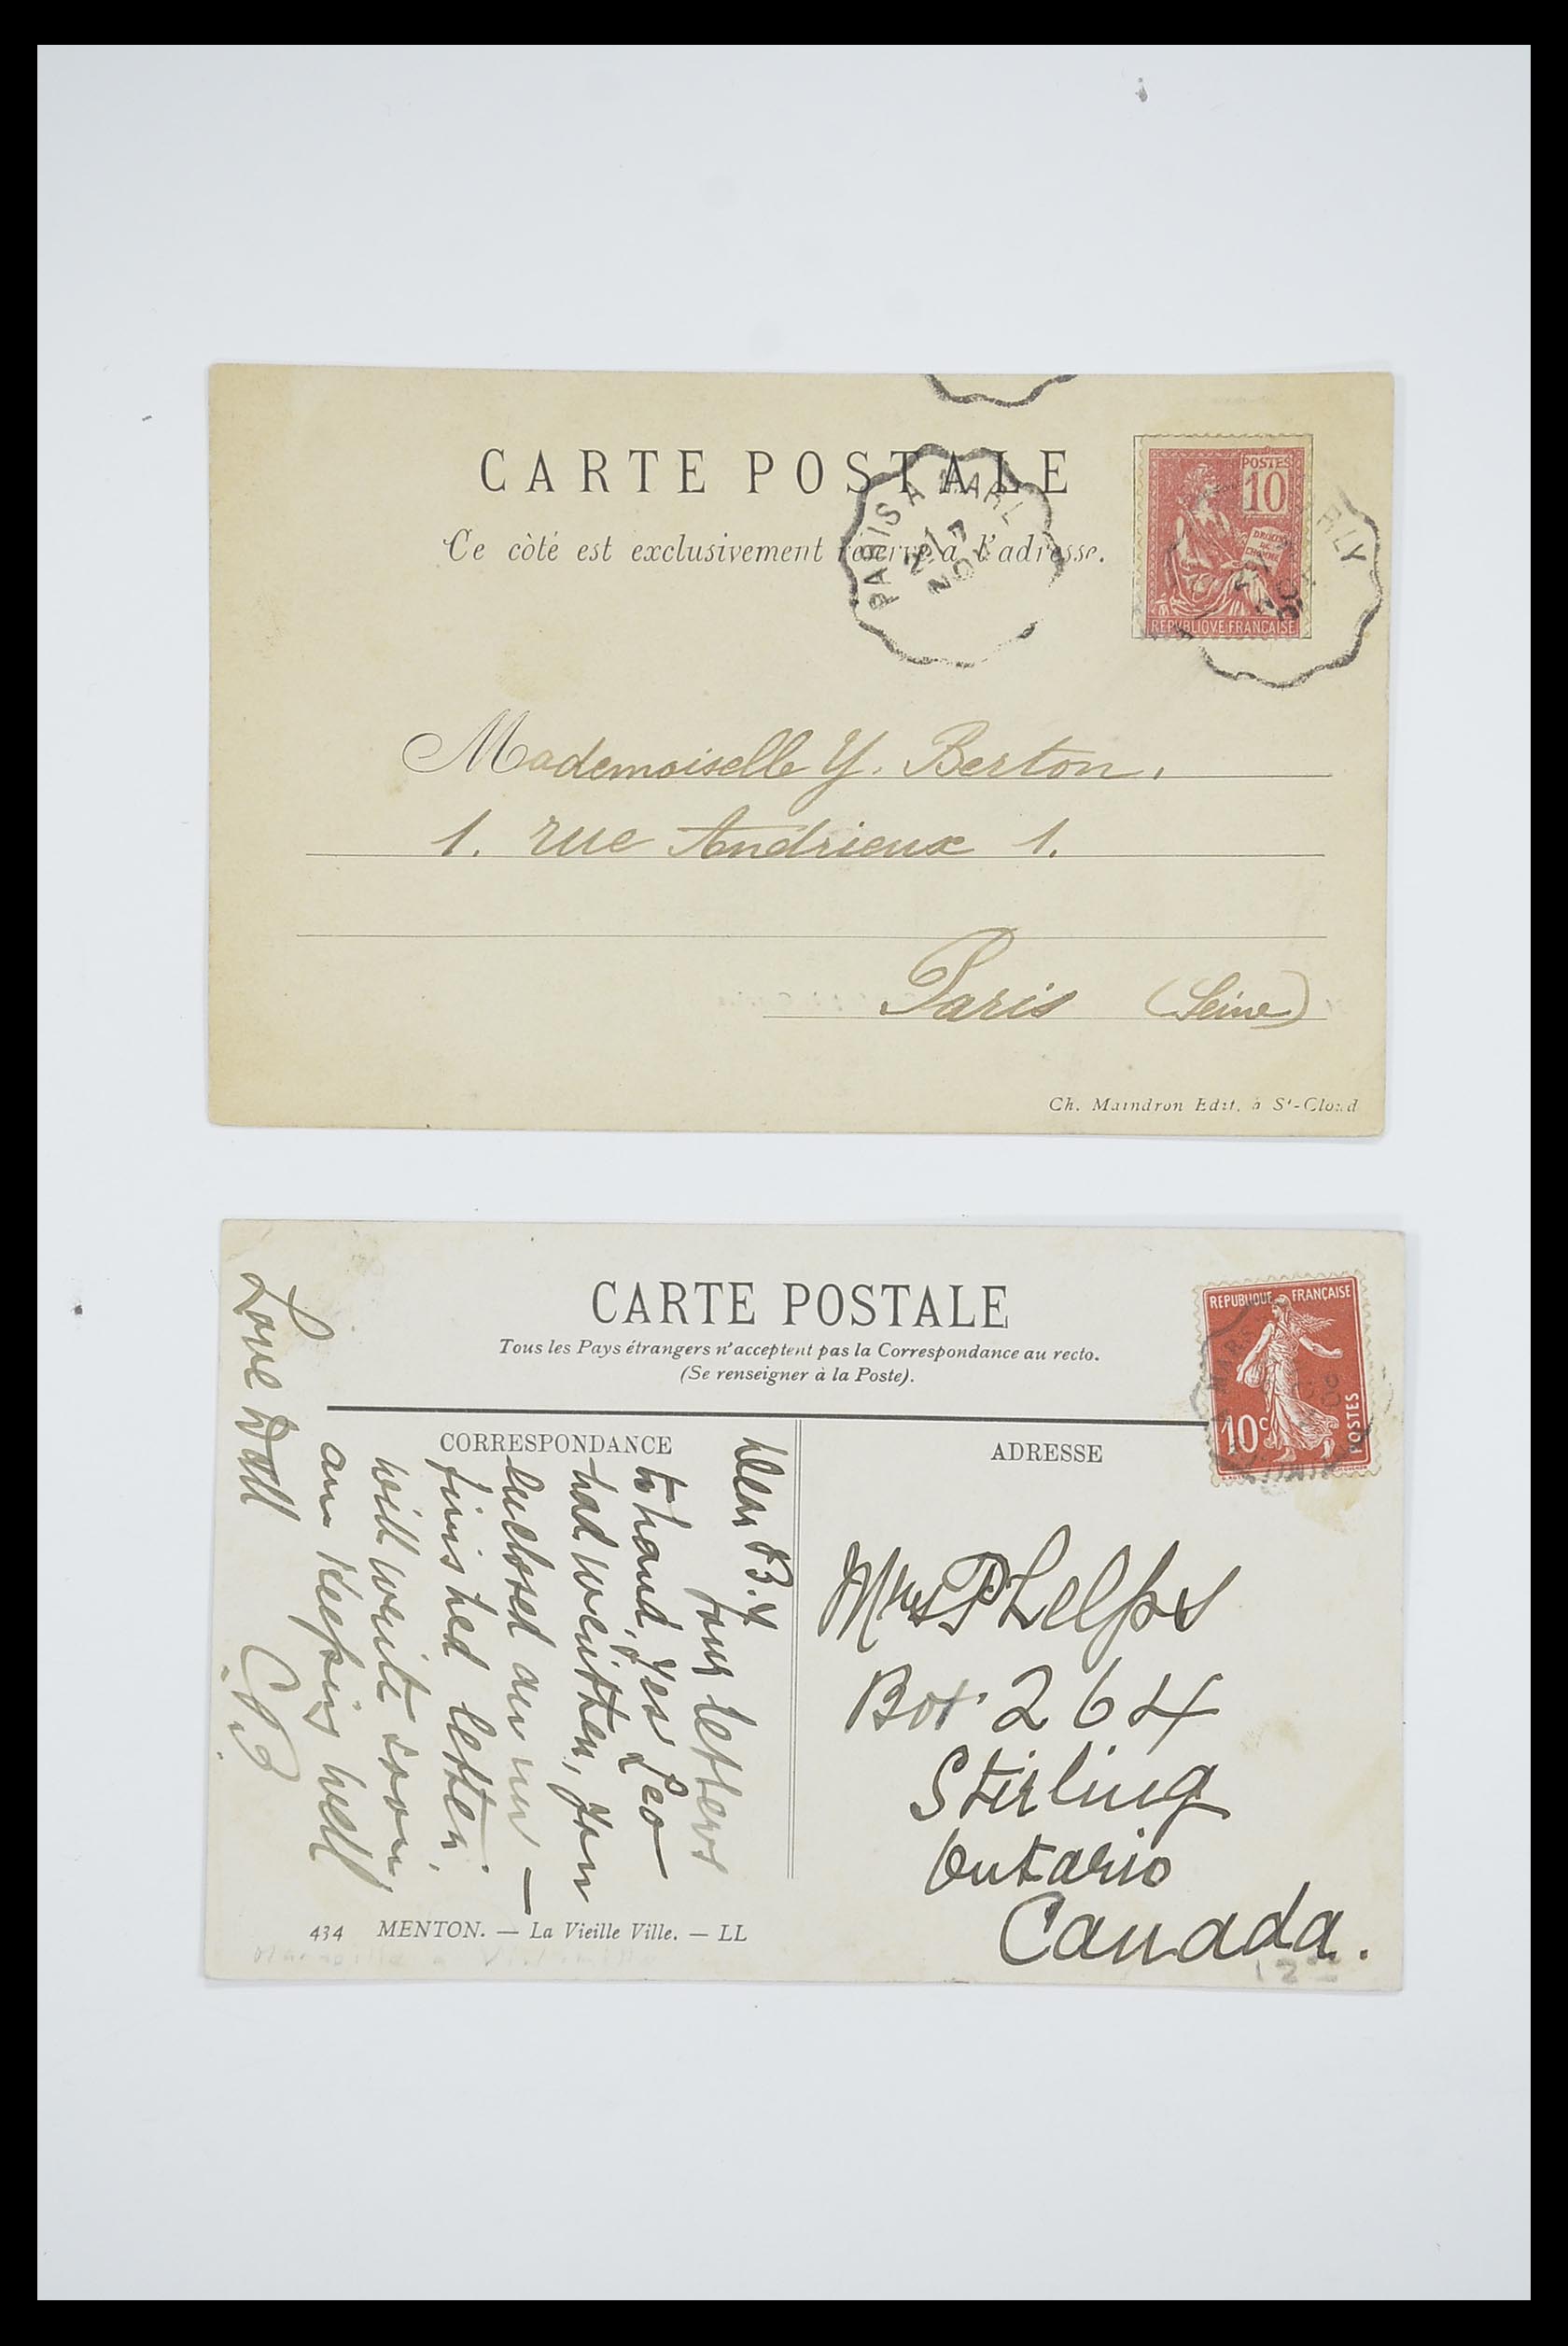 CARTE POSTALE
Ce côté est exclusivement réservé à l'adresse.
PARIS A MARL
NOV
RLY
POSTES
10
DROITS
DE
L'HOMME
REPUBLIQUE FRANÇAISE
Mademoiselle Y. Berton.
1. rue Andrieux 1.
Paris (Seine)
Ch. Maindron Edit. à St-Cloud
CARTE POSTALE
Tous les Pays étrangers n'acceptent pas la Correspondance au recto.
(Se renseigner à la Poste).
REPUBLIQUE FRANÇAISE
10c
POSTES
CORRESPONDANCE
Dear B.
Your letters
to hand, Yes Leo
had written, Your
enclosed an un—
finished letter.
will write soon
am keeping well
Love to all
C.P.
ADRESSE
Mrs Phelps
Box 264
Stirling
Ontario
Canada.
434 MENTON. — La Vieille Ville. — LL